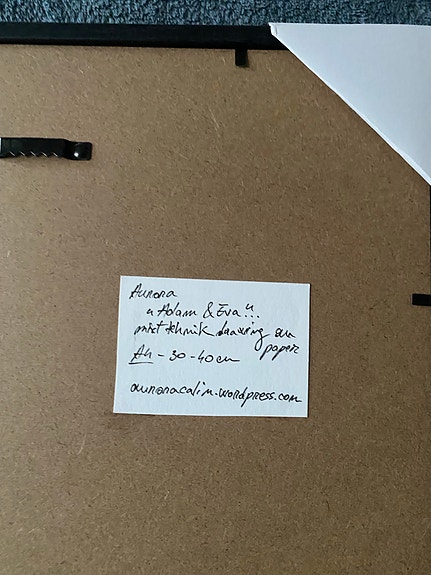 Aurora
"Adam & Eva"..
mixt tehnik drawing on
paper
A4 - 30-40 cm
auroracalin.wordpress.com